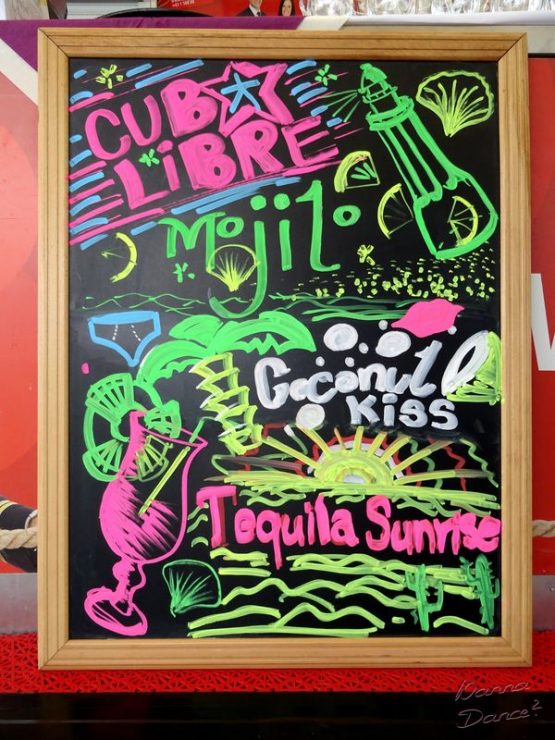 CUBA
LiBRE
Mojito
Coconut
Kiss
Tequila Sunrise
Wanna
Dance?